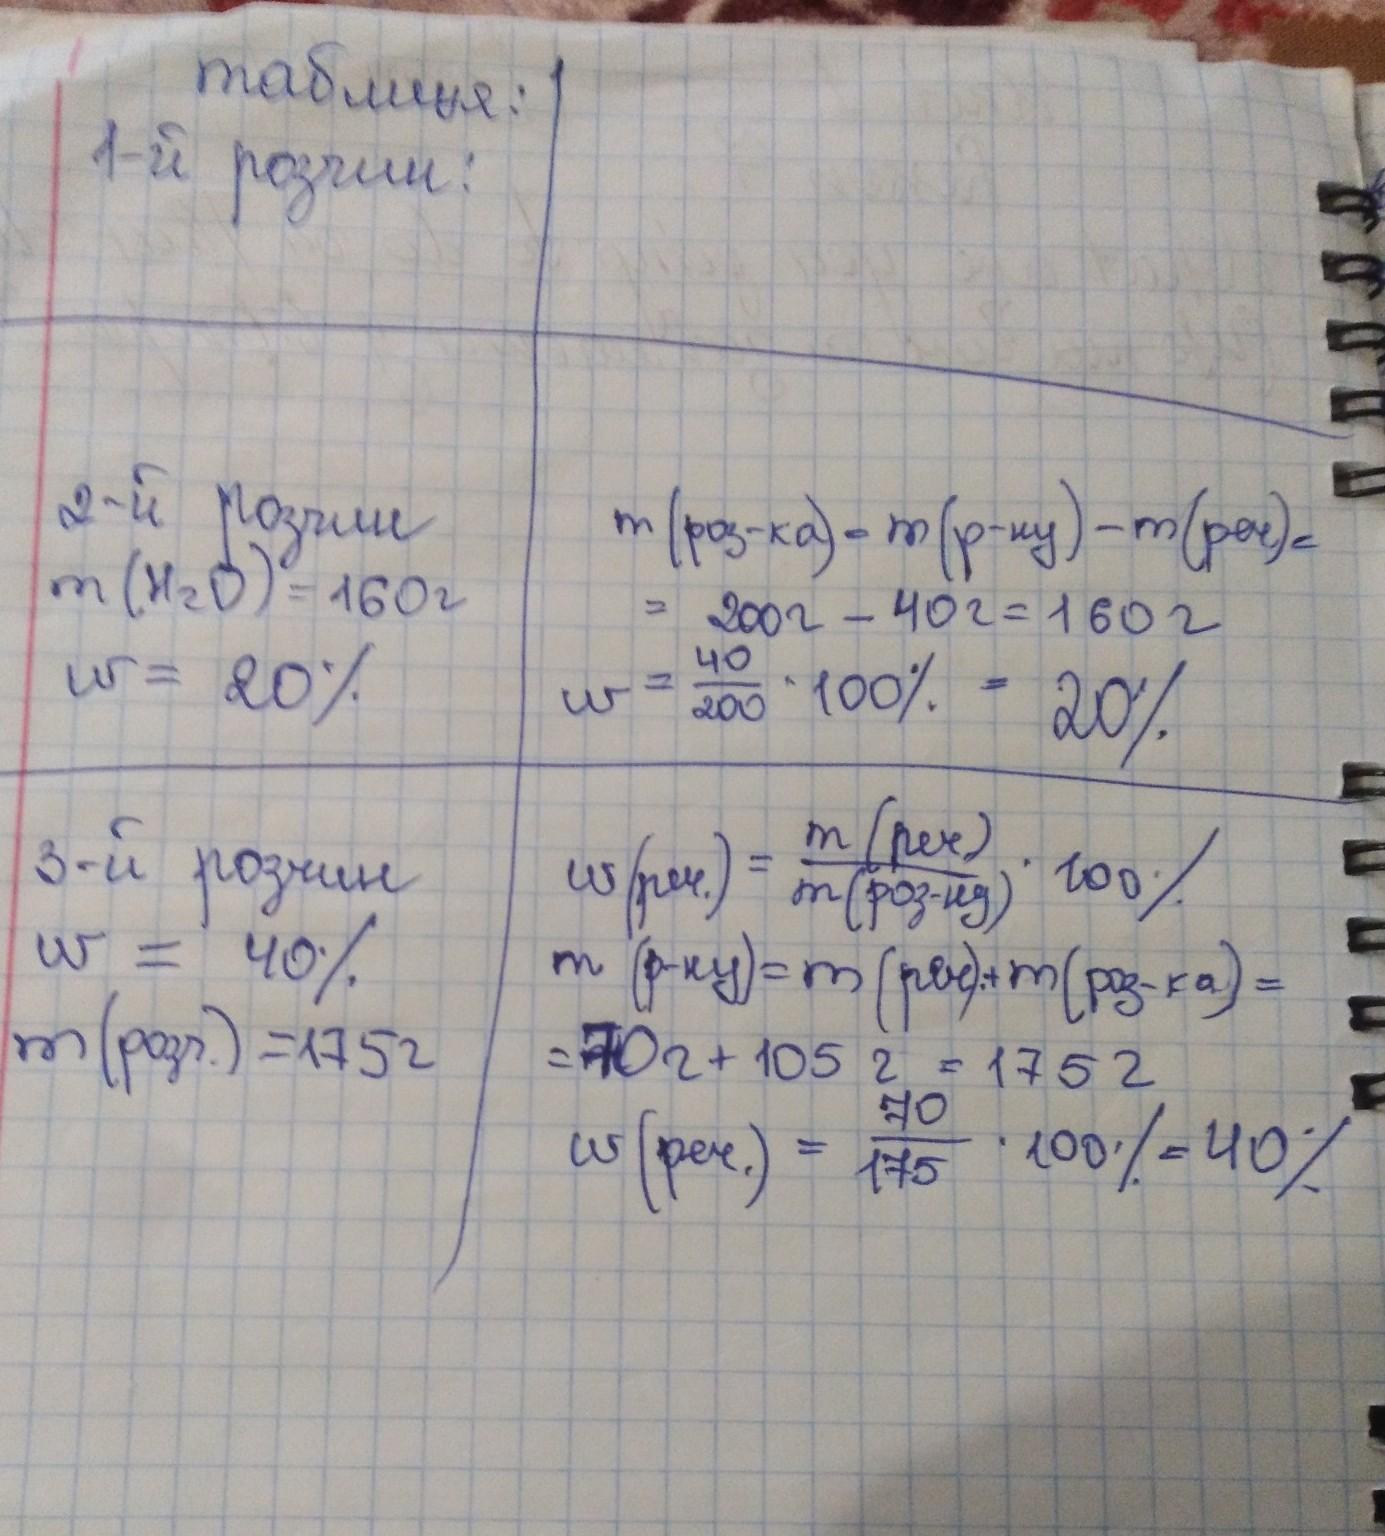 таблиця:
1-й розчин:
2-й розчин
m(H₂O)=160г
w= 20%
m(роз-ка)=m(р-ну)-m(реч.)=
= 200г - 40г=160г
w = 40/200 · 100% = 20%
3-й розчин
w = 40%
m(розч.)=175г
w(реч.) = m(реч)/m(роз-ну) · 100%
m (р-ну)=m(реч).+m(роз-ка)=
=70г+105 г = 175г
w(реч.) = 70/175 · 100%=40%